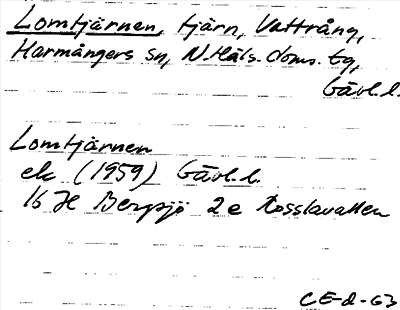 Lomtjärnen, tjärn, Vattrång,
Harmångers sn, N. Häls. doms. tg,
Gävl. l.
Lomtjärnen
ek (1959) Gävl. l.
16 H Bergsjö 2e Kosslavallen
CE-d-63